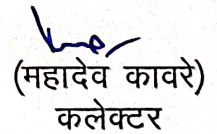 (महादेव कावरे)
कलेक्टर